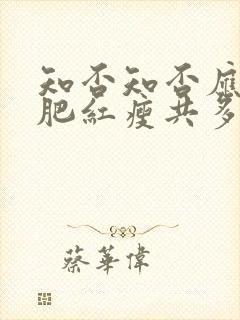 知否知否應
肥紅瘦共多
蔡華偉